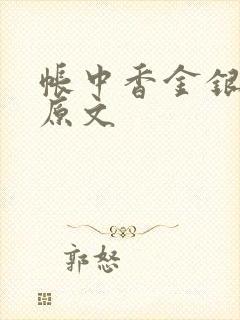 帐中香金银
原文
郭怒